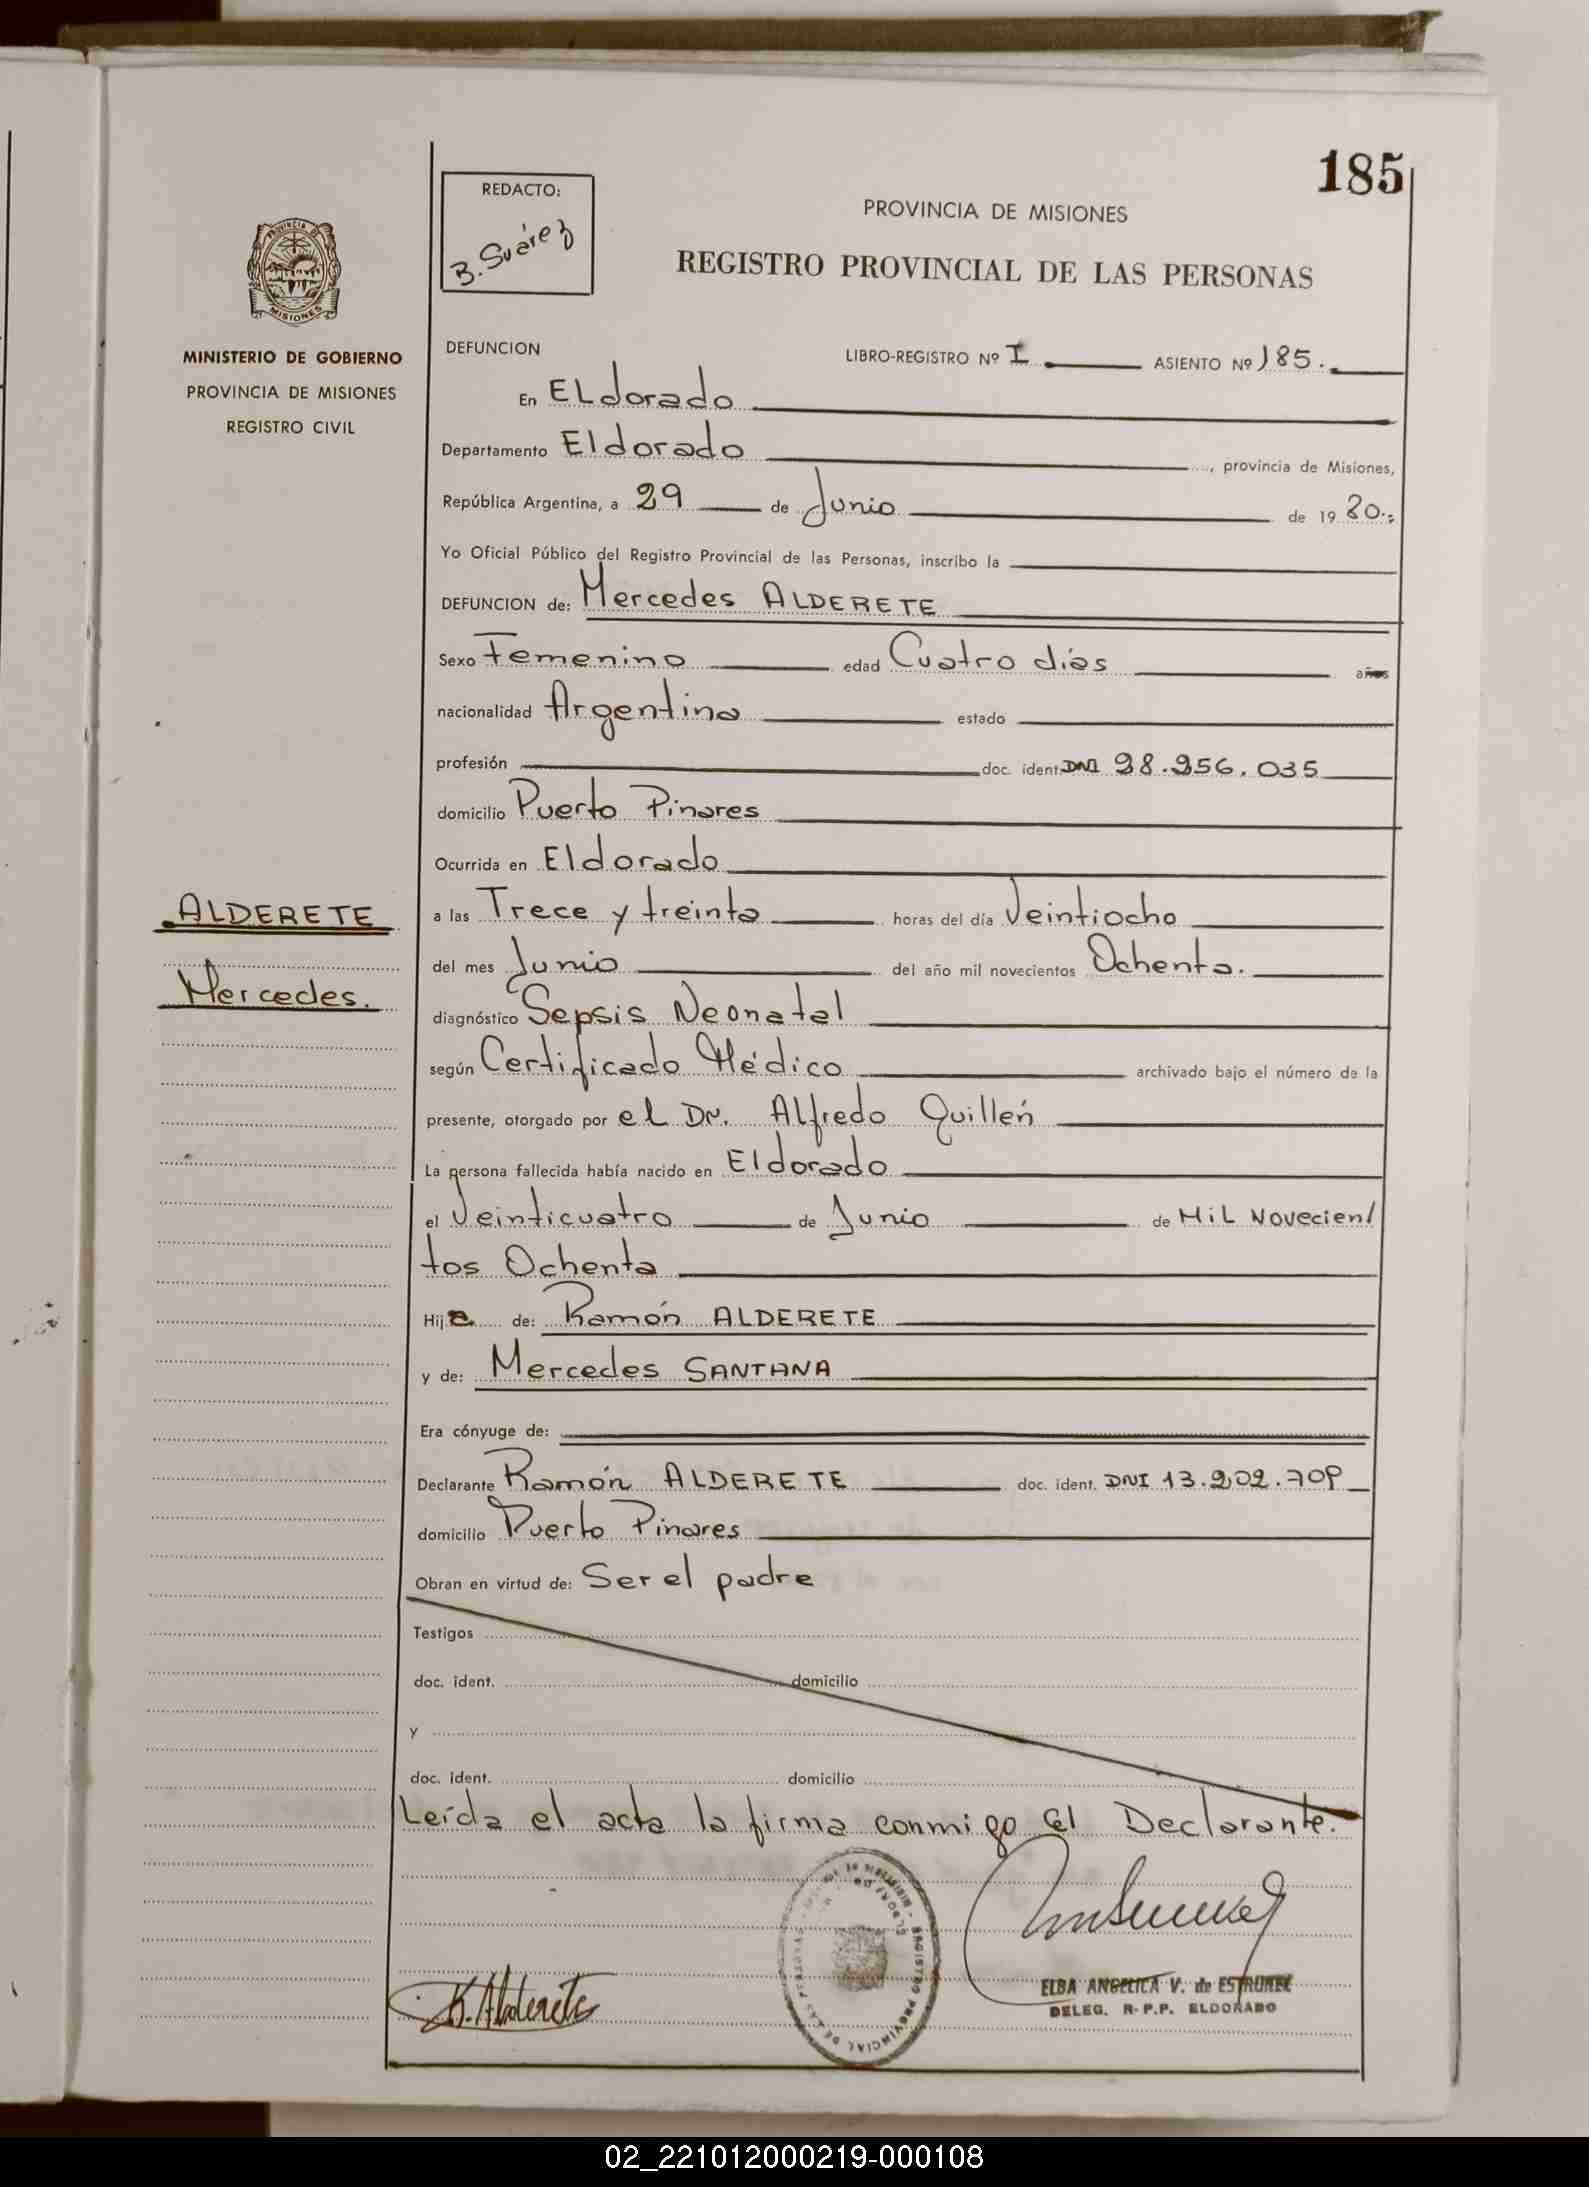 185
REDACTO:
B. Suárez
PROVINCIA DE MISIONES
REGISTRO PROVINCIAL DE LAS PERSONAS
MISIONES
MINISTERIO DE GOBIERNO
PROVINCIA DE MISIONES
REGISTRO CIVIL
DEFUNCION LIBRO-REGISTRO Nº I ASIENTO Nº 185.
En ELdorado
Departamento Eldorado, provincia de Misiones,
República Argentina, a 29 de Junio de 19 80.-
Yo Oficial Público del Registro Provincial de las Personas, inscribo la
DEFUNCION de: Mercedes ALDERETE
Sexo Femenino edad Cuatro días años
nacionalidad Argentina estado
profesión doc. ident. DNI 28.256.035
domicilio Puerto Pinares
Ocurrida en Eldorado
ALDERETE
Mercedes.
a las Trece y treinta horas del día Veintiocho
del mes Junio del año mil novecientos Ochenta.
diagnóstico Sepsis Neonatal
según Certificado Médico archivado bajo el número de la
presente, otorgado por el Dr. Alfredo Quillén
La persona fallecida había nacido en Eldorado
el Veinticuatro de Junio de Mil Novecien/
tos Ochenta
Hija de: Ramón ALDERETE
y de: Mercedes SANTANA
Era cónyuge de:
Declarante Ramón ALDERETE doc. ident. DNI 13.202.709
domicilio Puerto Pinares
Obran en virtud de: Ser el padre
Testigos
doc. ident. domicilio
y
doc. ident. domicilio
Leída el acta la firma conmigo el Declarante.
R. Alderete
REGISTRO PROVINCIAL DE LAS PERSONAS
ELBA ANGELICA V. de
DELEG. R.P.P. ELDORADO
02_221012000219-000108